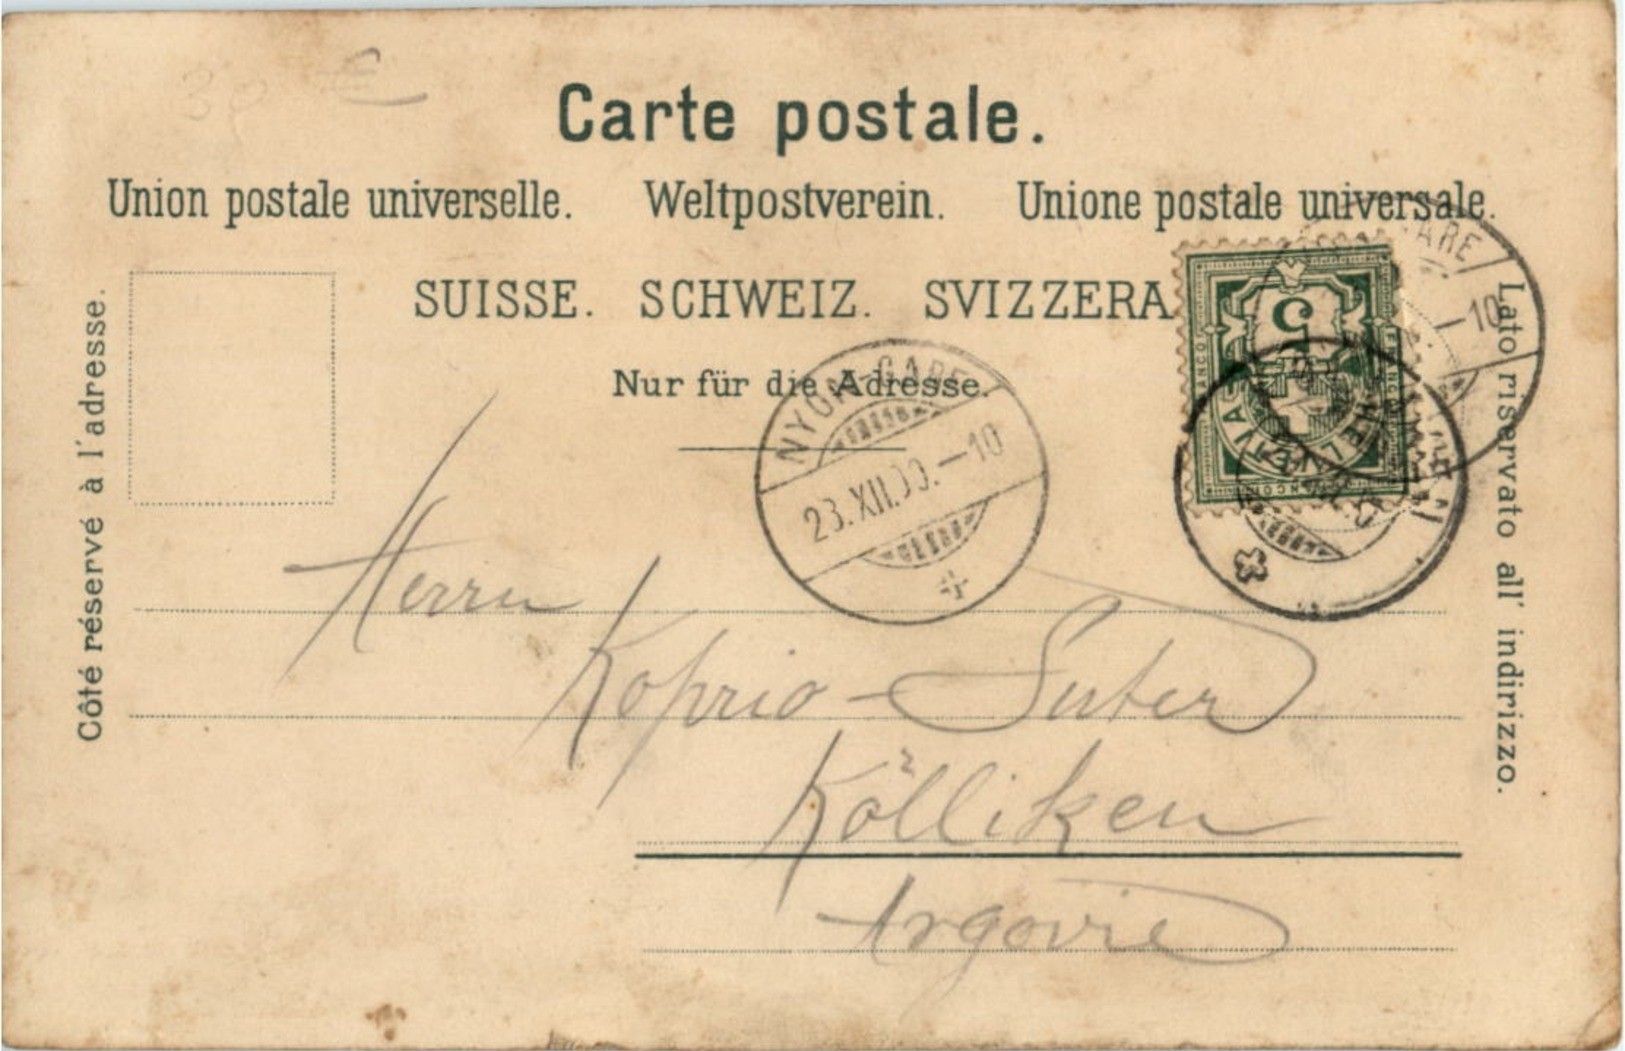 Carte postale.
Union postale universelle. Weltpostverein. Unione postale universale.
SUISSE. SCHWEIZ. SVIZZERA
Nur für die Adresse.
Côté réservé à l'adresse.
Lato riservato all' indirizzo.
NYON-GARE
23.XII.00.-10
GARE
-10
5
FRANCO
HELVETIA
Herrn
Koprio-Suter
Kölliken
Argovie